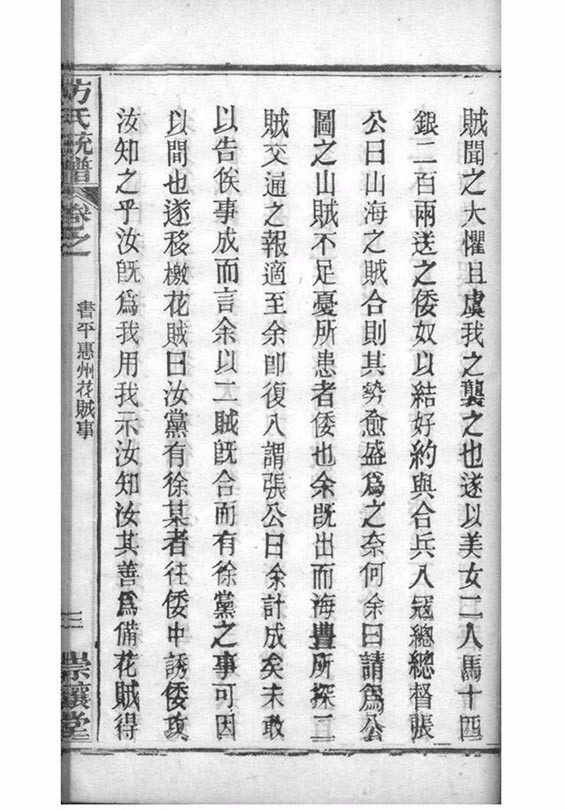 賊聞之大懼且虞我之襲之也遂以美女二人馬十四
銀二百兩送之倭奴以結好約與合兵入寇總總督張
公曰山海之賊合則其勢愈盛爲之奈何余曰請爲公
圖之山賊不足憂所患者倭也余旣出而海豐所探二
賊交通之報適至余卽復入謂張公曰余計成矣未敢
以告俟事成而言余以二賊旣合而有徐黨之事可因
以間也遂移檄花賊曰汝黨有徐某者往倭中誘倭攻
汝知之乎汝旣爲我用我示汝知汝其善爲備花賊得
方氏統譜 卷之
書平惠州花賊事
三
崇讓堂